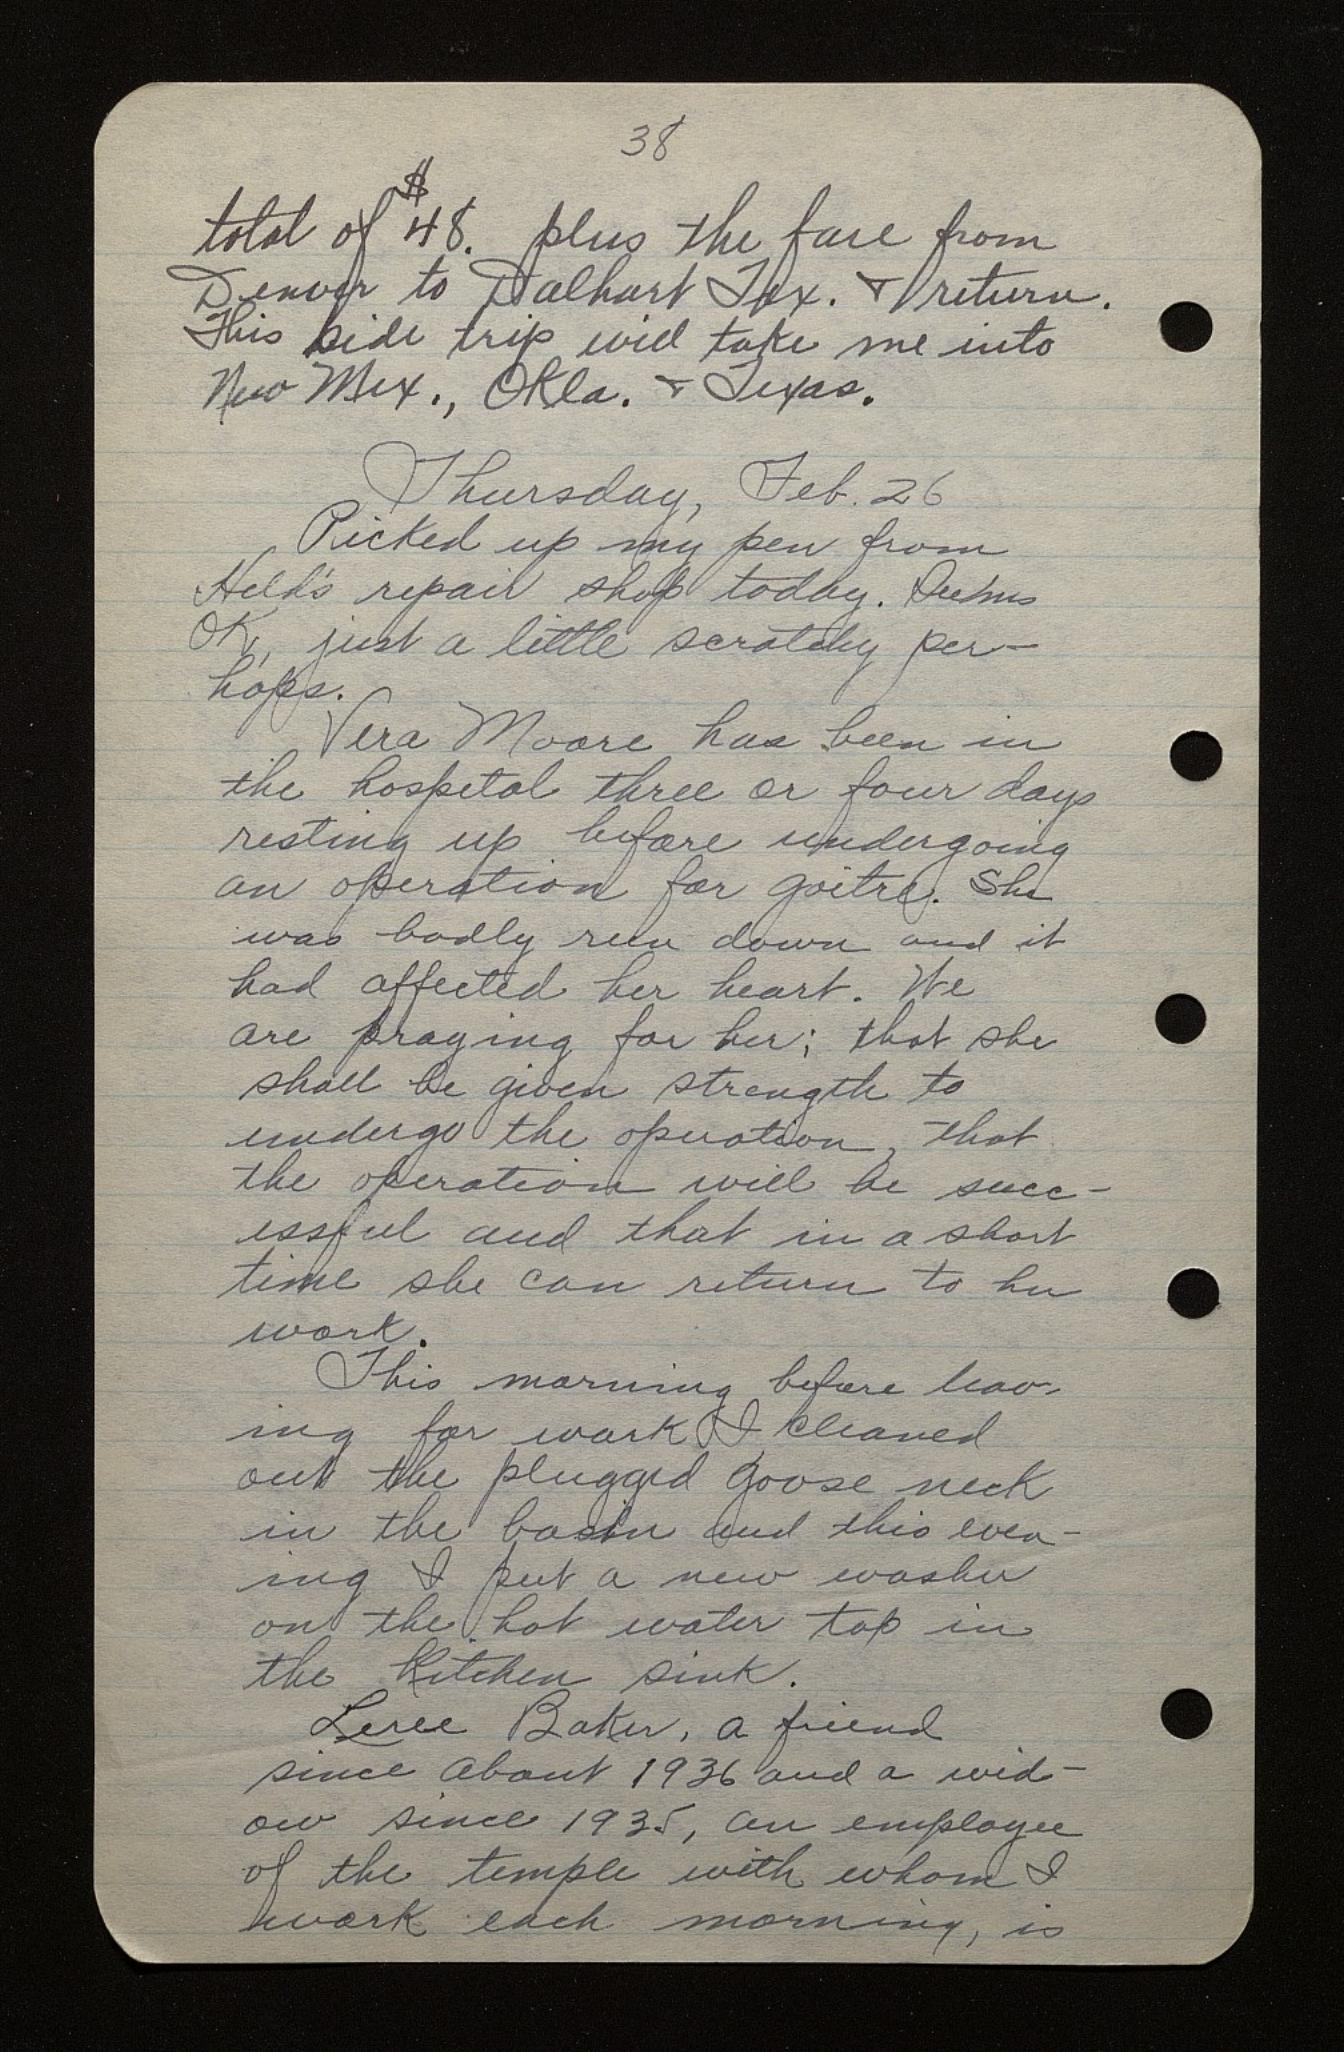 38
total of $48. plus the fare from
Denver to Dalhart Tex. & return.
This side trip will take me into
New Mex., Okla. & Texas.
Thursday, Feb. 26
Picked up my pen from
Held's repair shop today. Seems
OK, just a little scratchy per-
haps.
Vera Moore has been in
the hospital three or four days
resting up before undergoing
an operation for goitre. She
was badly run down and it
had affected her heart. We
are praying for her; that she
shall be given strength to
undergo the operation, that
the operation will be succ-
essful and that in a short
time she can return to her
work.
This morning before leav-
ing for work I cleaned
out the plugged goose neck
in the basin and this even-
ing I put a new washer
on the hot water tap in
the kitchen sink.
Baker, a friend
since about 1936 and a wid-
ow since 1935, an employee
of the temple with whom I
work each morning, is